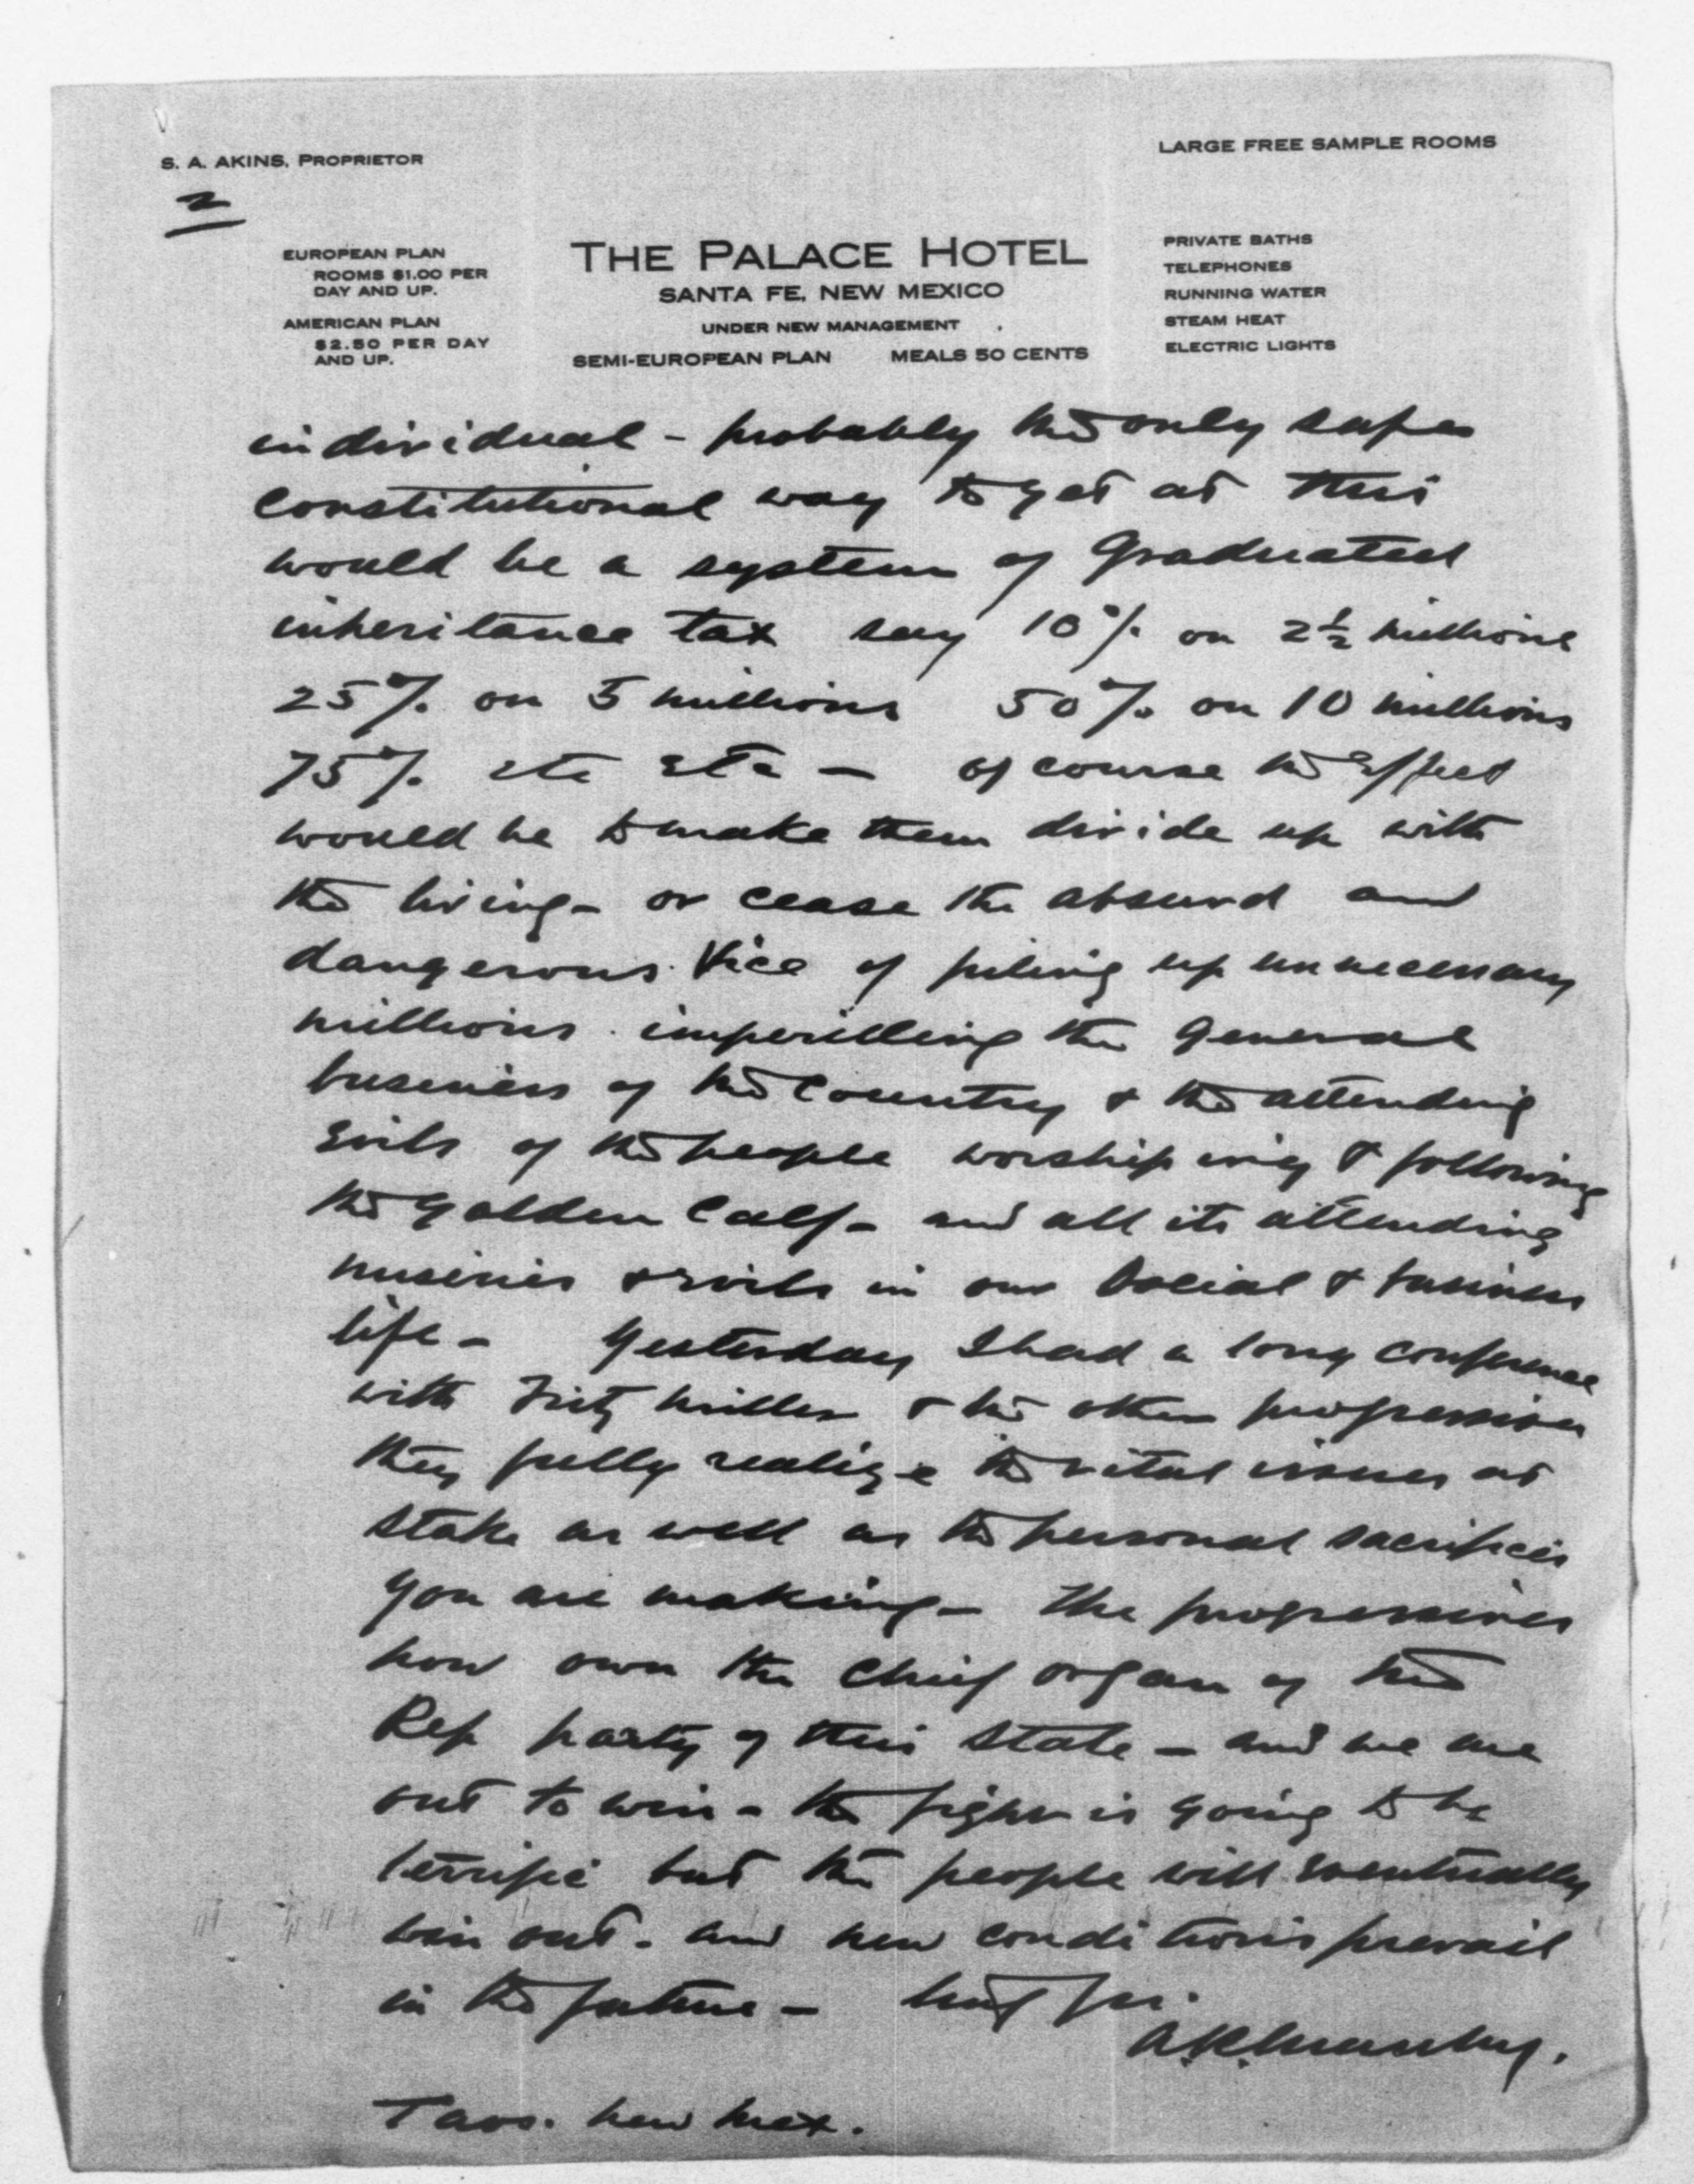 S. A. AKINS, PROPRIETOR
LARGE FREE SAMPLE ROOMS
2
EUROPEAN PLAN
ROOMS $1.00 PER
DAY AND UP.
AMERICAN PLAN
$2.50 PER DAY
AND UP.
THE PALACE HOTEL
SANTA FE, NEW MEXICO
UNDER NEW MANAGEMENT
SEMI-EUROPEAN PLAN MEALS 50 CENTS
PRIVATE BATHS
TELEPHONES
RUNNING WATER
STEAM HEAT
ELECTRIC LIGHTS
individual - probably the only safe
constitutional way to get at this
would be a system of Graduated
inheritance tax say 10% on 2½ millions
25% on 5 millions 50% on 10 millions
75% etc etc - of course the effect
would be to make them divide up with
the living - or cease the absurd and
dangerous Vice of piling up unnecessary
millions imperilling the General
business of the Country & the attending
Evils of the people worshiping & following
the Golden Calf - and all its attending
miseries & evils in our Social & business
life - Yesterday I had a long conference
with Fritz Muller & the other progressives
they fully realize the vital issues at
stake as well as the personal sacrifices
you are making - The progressives
now own the chief organ of the
Rep party of this State - and we are
out to win - the fight is going to be
terrific but the people will eventually
win out - and new conditions prevail
in the future -
A.R. Manby.
Taos. New Mex.